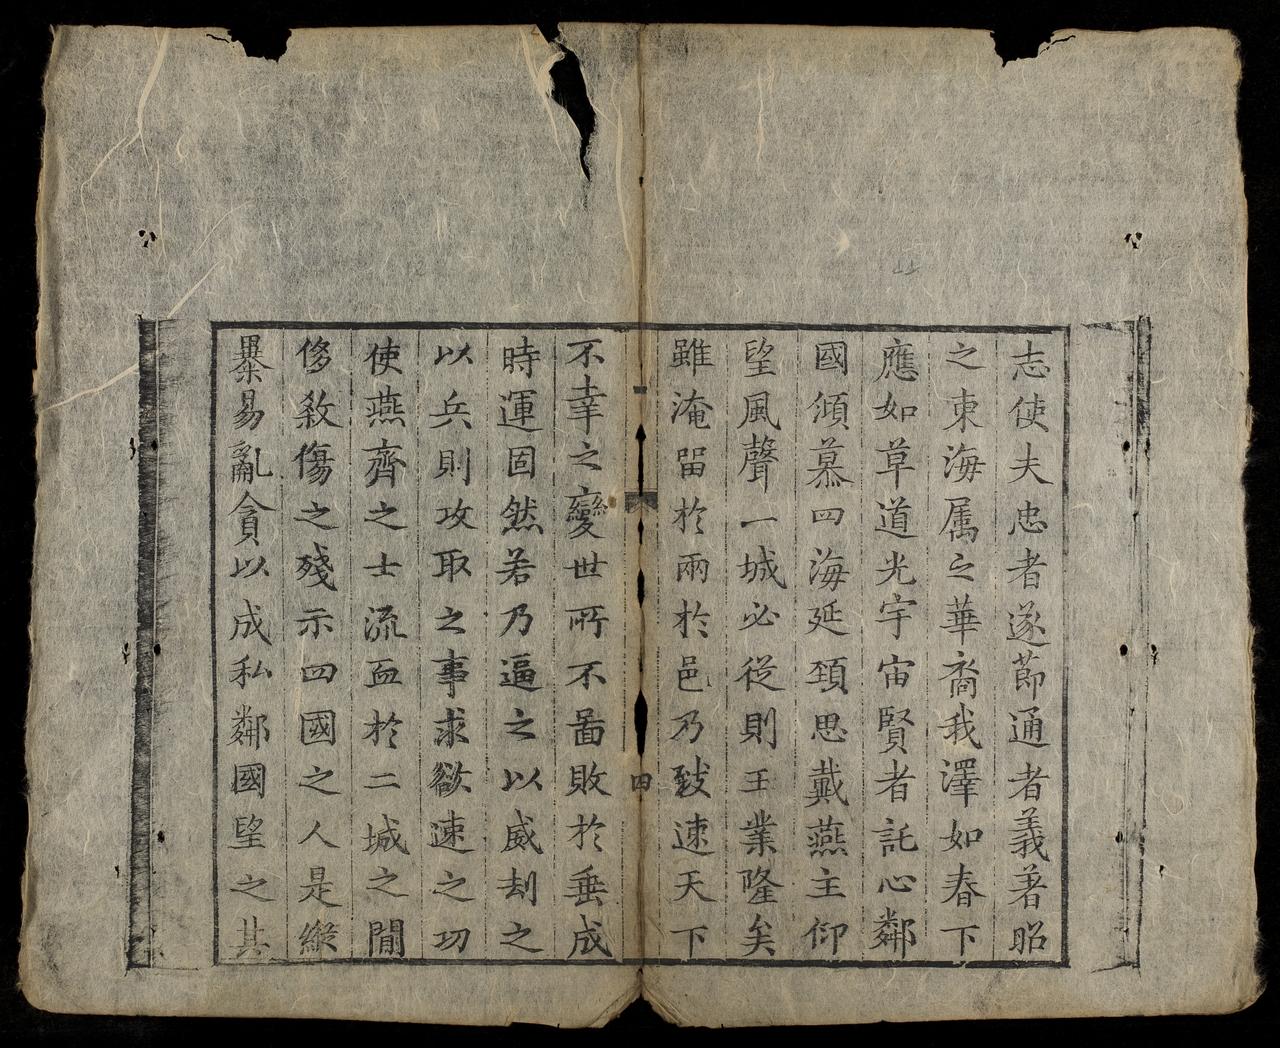 志使夫忠者遂節通者義著昭
之東海属之華裔我澤如春下
應如草道光宇宙賢者託心鄰
國傾慕四海延頸思戴燕主仰
望風聲一城必從則王業隆矣
雖淹留於兩於邑乃致速天下
四
不幸之變世所不啚敗於垂成
時運固然若乃逼之以威刼之
以兵則攻取之事求欲速之功
使燕齊之士流血於二城之間
侈殺傷之殘示四國之人是縱
暴易亂貪以成私鄰國望之其